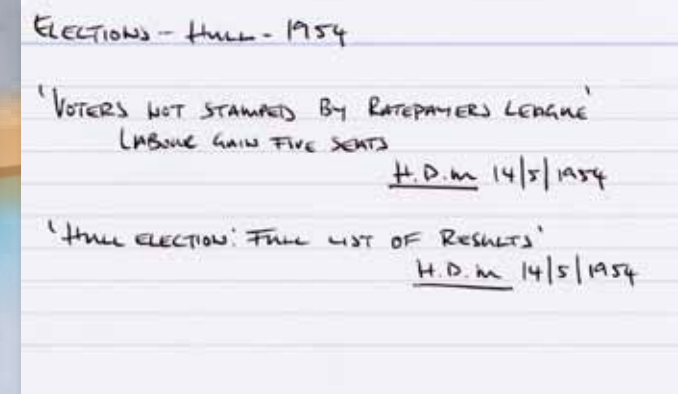 ELECTIONS - HULL - 1954
'VOTERS NOT STAMPED BY RATEPAYERS LEAGUE'
LABOUR GAIN FIVE SEATS
H.D.M 14/5/1954
'HULL ELECTION: FULL LIST OF RESULTS'
H.D.M 14/5/1954